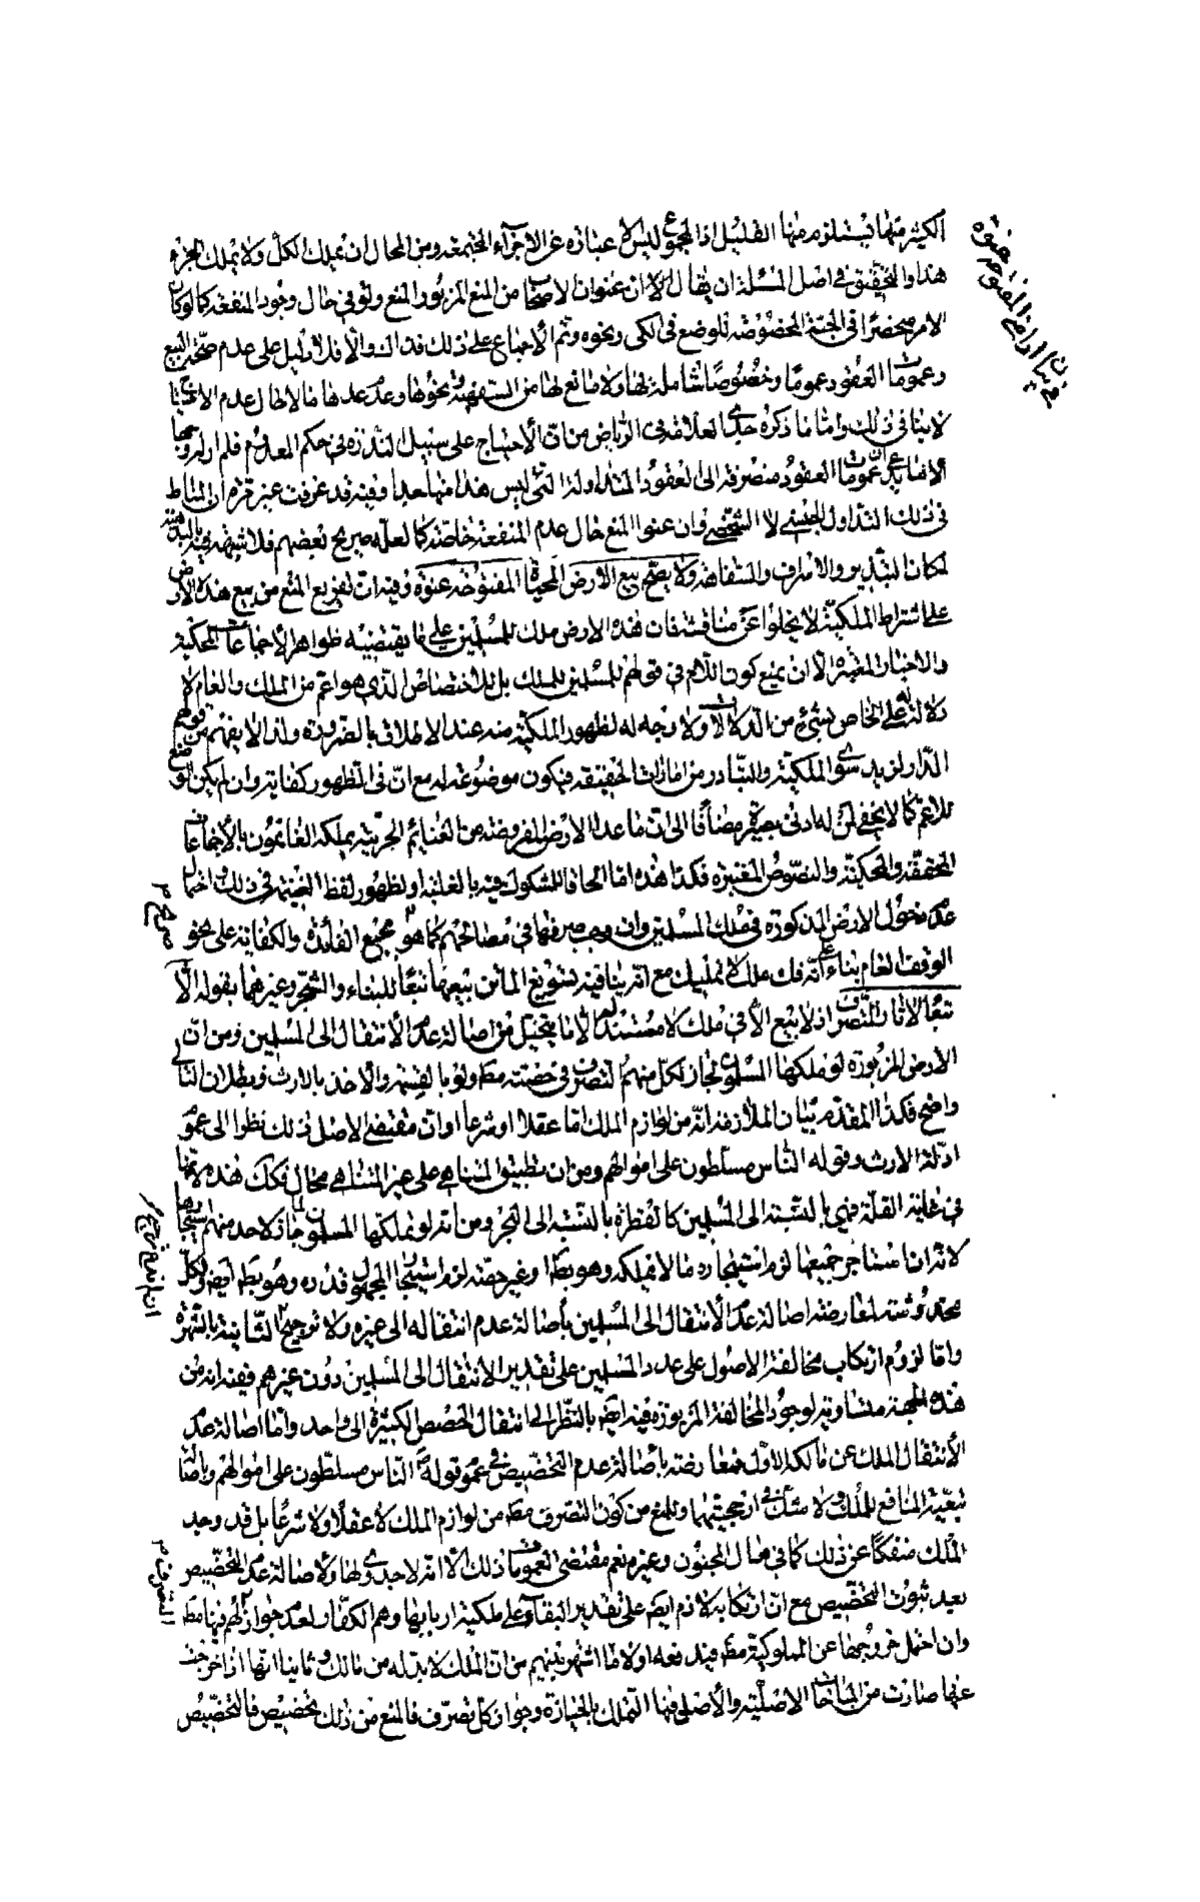 الكثير منها فيستلزمه منها القليل اذ المجموع ليس الا عبارة عن الاجزاء المجتمعة ومن المحال ان يملك الكل ولا يملك الجزء
هذا والتحقيق في اصل المسئلة ان يقال الا ان عنوان الاصحاب من المنع المزبور المنع ولو في حال وجود المنفعة كما لو كان
الامر منحصرا في الحبة المخصوصة للوضع في الكى ونحوه وتم الاجماع على ذلك فذاك والا فلا دليل على عدم صحة البيع
وعمومات العقود عموما وخصوصا شاملة لها ولا مانع لها من السفهية ونحوها وعد عدلها مالا لا عدم الاعتناء بها
لا ينافي ذلك واما ما ذكره جدى العلامة في الرياض من ان الاحتياج على سبيل الندرة في حكم المعدوم فلم ار له وجها
الا ما يدعى ان عمومات العقود منصرفة الى العقود المتداولة التي ليس هذا منها جدا وفيه قد عرفت غير مرة ان المناط
في ذلك التداول الجنسي لا الشخصي وان عنوا المنع حال عدم المنفعة خاصة كما لعله صريح بعضهم فلا شبهة فيه بالبداهة
لمكان التبذير والاسراف والسفاهة ولا يصح بيع الارض المحياة المفتوحة عنوة وفيه ان تفريع المنع من بيع هذه الارض
على اشتراط الملكية لا يخلوا عن مناقشة فان هذه الارض ملك للمسلمين على ما يقتضيه ظواهر الاجماعات المحكية
والاخبار المعتبرة الا ان يمنع كون اللام في قولهم للمسلمين للملك بل للاختصاص الذي هو اعم من الملك والعام لا
دلالة له على الخاص بشيء من الدلالات ولا وجه له لظهور الملكية منه عند الاطلاق بالضرورة ولذا لا يفهم من قولهم
الدار لزيد سوى الملكية والتبادر من امارات الحقيقة فيكون موضوعة له مع ان في الظهور كفاية وان لم يكن الوضع
للاعم كما لا يخفى لمن له ادنى بصيرة مضافا الى ان ما عدا الارض المفروضة من الغنايم الحربية يملكه الغانمون بالاجماعات
المحققة والمحكية والنصوص المعتبرة فكذا هذه اما الحاقا للمشكوك فيه بالغلبة او لظهور لفظ الغنيمة في ذلك واحتمال
عدم دخول الارض المذكورة في ملك المسلمين وان وجب صرفها في مصالحهم كما هو مجمع الفائدة والكفاية على نحو
الوقف العام بناء على انه فك ملك لا تمليك مع انه ينافيه تسويغ الماتن بيعها تبعا للبناء والشجر وغيرهما بقوله الا
تبعا لآثار التصرف اذ لا بيع الا في ملك لا مستند له الا ما يتخيل من اصالة عدم الانتقال الى المسلمين ومن ان
الارض المزبورة لو ملكها المسلمون لجاز لكل منهم التصرف في حصته مط ولو بالقسمة والاخذ بالارث وبطلان التالي
واضح فكذا المقدم بيان الملازمة انه من لوازم الملك اما عقلا او شرعا او ان مقتضى الاصل ذلك نظرا الى عموم
ادلة الارث وقوله الناس مسلطون على اموالهم ومن ان تطبيق المتناهي على غير المتناهي محال فكك هذه لانها
في غاية القلة فهي بالنسبة الى المسلمين كالقطرة بالنسبة الى البحر ومن انه لو تملكها المسلمون لما جاز لاحد منهم استيجارها
لانه ان استاجر جميعها لزم استيجاره ما لا يملكه وهو بط او غير حصته لزم استيجار المجهول قدره وهو بط ايضا ولكل
مخدوشة لمعارضة اصالة عدم الانتقال الى المسلمين باصالة عدم انتقاله الى غيره ولا ترجيح الثانية بالشهرة
واما لزوم ارتكاب مخالفة الاصول على عدد المسلمين على تقدير الانتقال الى المسلمين دون غيرهم ففيه انه من
هذه الجهة متساوية لوجود المخالفة المزبورة فيه ايضا بالنظر الى انتقال الحصص الكثيرة الى واحد واما اصالة عدم
الانتقال الملك عن مالكه الاول فمعارضة باصالة عدم التخصيص في عموم قوله الناس مسلطون على اموالهم واصالة
تبعية المنافع للملك ولا شك في ارجحيتهما وللمنع من كون التصرف مط من لوازم الملك لا عقلا ولا شرعا بل قد وجد
الملك منفكا عن ذلك كما في مال المجنون وغيره نعم مقتضى العمومات ذلك الا انه لا جدوى لها ولا صالة عدم التخصيص
بعد ثبوت التخصيص مع ان ارتكابه لازم ايضا على تقدير البقاء على ملكية اربابها وهم الكفار لعدم جواز لهم فيها مط
وان احتمل خروجها عن المملوكية مط فيندفعه اولا ما اشتهر بينهم من ان الملك لا بد له من مالك وثانيا انها اذا خرجت
عنها صارت من المباحات الاصلية والاصل فيها التملك بالحيازة وجواز كل تصرف فالمنع من ذلك تخصيص فالتخصيص
في بيان اراضي المفتوحة عنوة
التصرف م